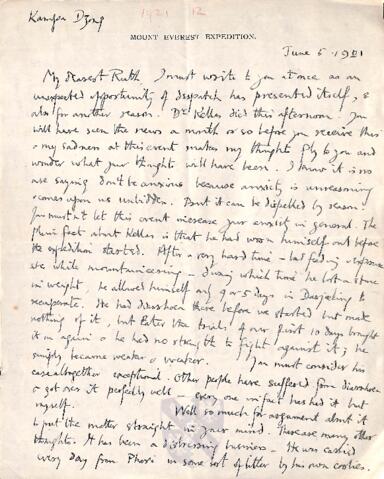 Kampa Dzong
1921 12
MOUNT EVEREST EXPEDITION.
June 5. 1921
My dearest Ruth, I must write to you at once as an
unexpected opportunity of despatch has presented itself, &
also for another reason. Dr Kellas died this afternoon. You
will have seen the news a month or so before you receive this
& my sadness at this event makes my thoughts fly to you and
wonder what your thoughts will have been. I know it is no
use saying don't be anxious because anxiety is unreasoning
& comes upon us unbidden. But it can be dispelled by reason.
You must not let this event increase your anxiety in general. The
plain fact about Kellas is that he had worn himself out before
the expedition started. After a very hard time - bad feeding & exposure
etc while mountaineering - during which time he lost a stone
in weight, he allowed himself only 4 or 5 days in Darjeeling to
recuperate. He had diarrhoea there before we started but made
nothing of it, but later the trials of our first 10 days brought
it on again & he had no strength to fight against it; he
simply became weaker & weaker. You must consider his
case altogether exceptional. Other people have suffered from diarrhoea
& got over it perfectly well - every one in fact has had it but
myself. Well so much for argument about it
to put the matter straight in your mind. There are many other
thoughts. It has been a distressing business - He was carried
every day from Phari in some sort of litter by his own coolies.